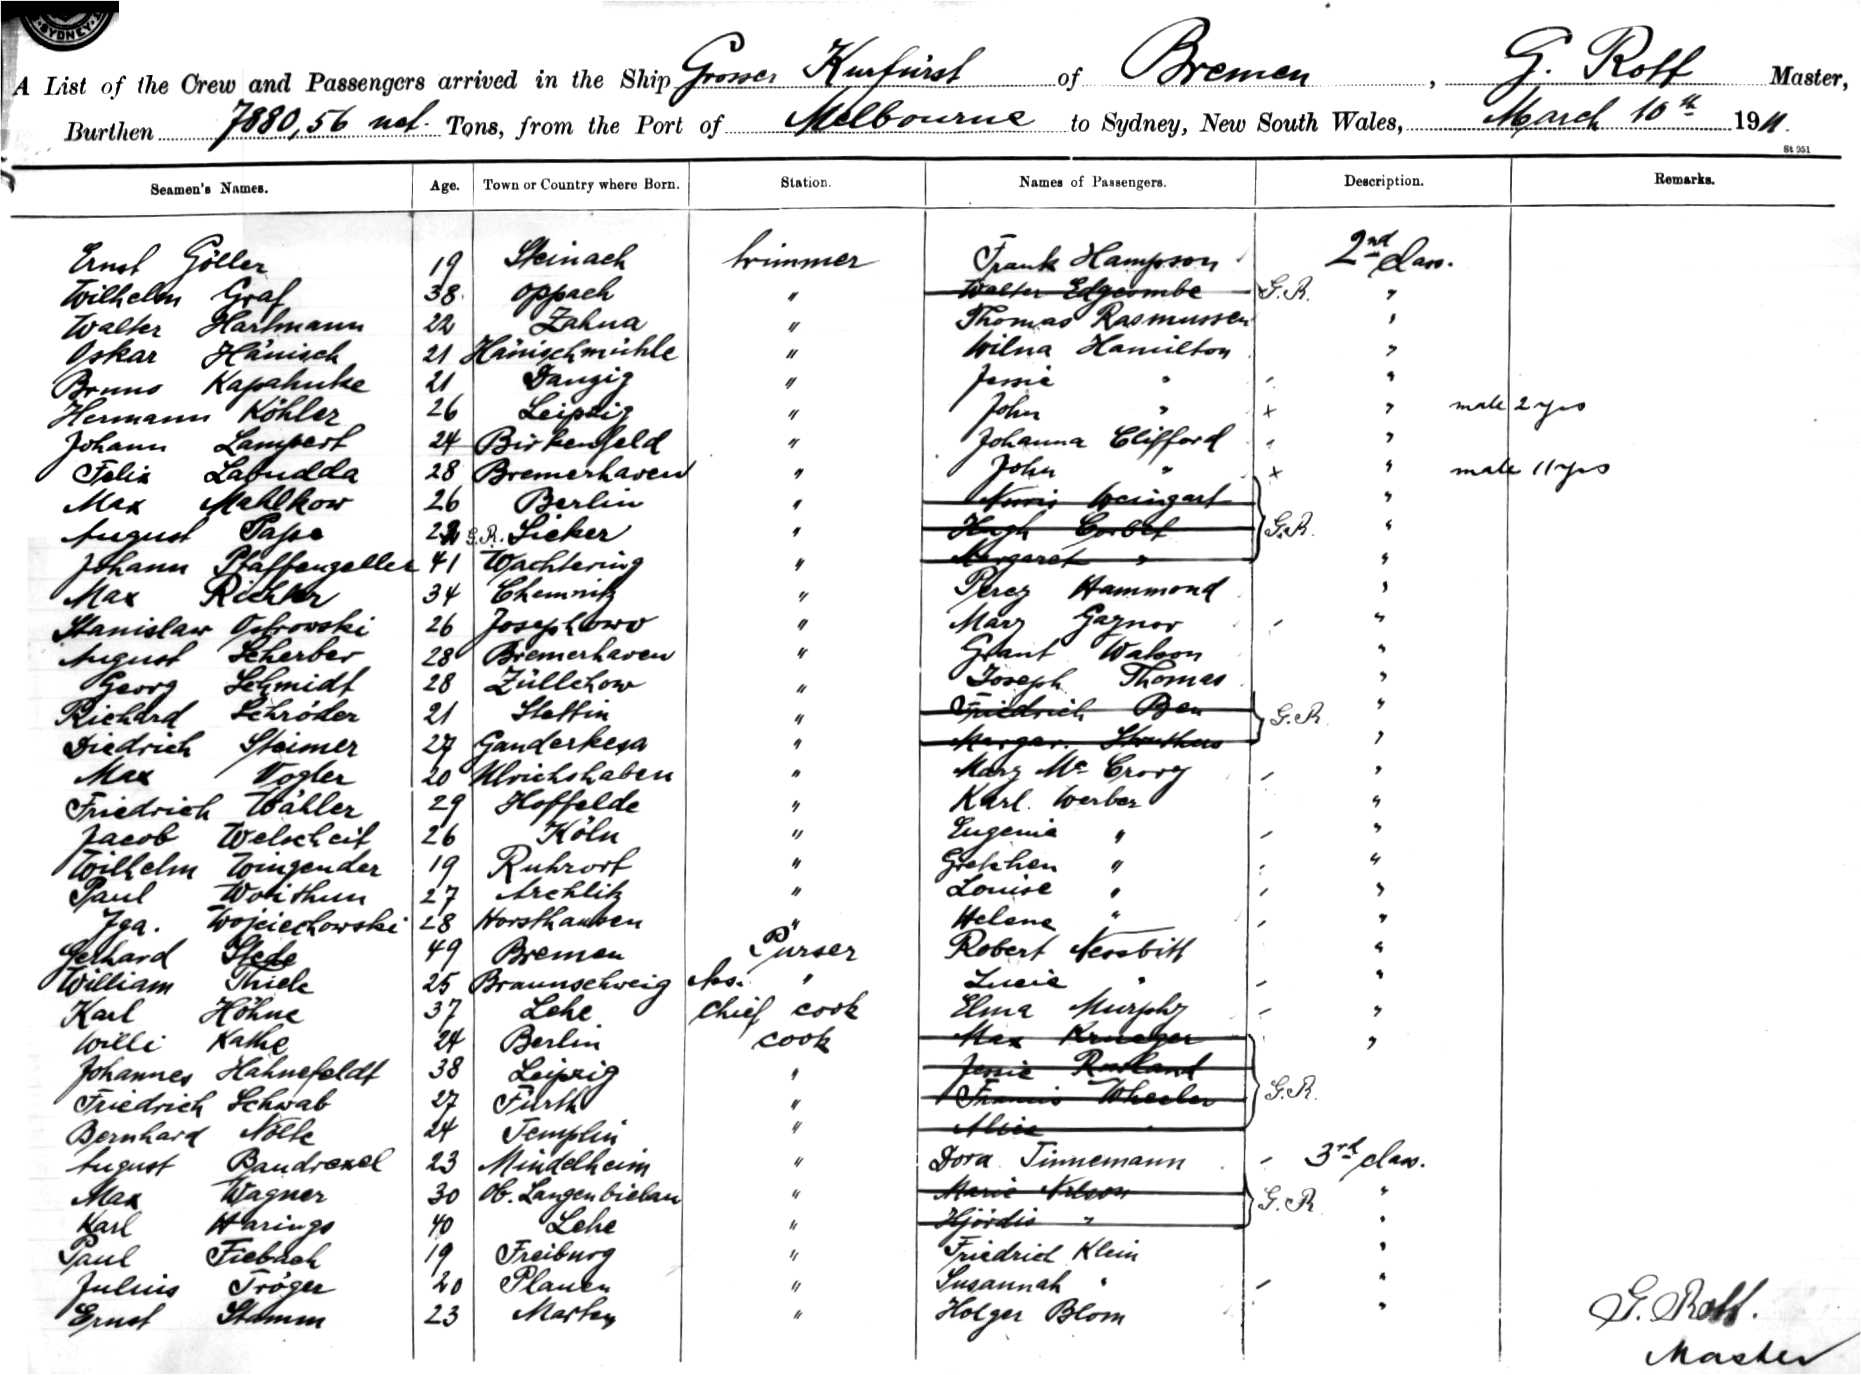 SYDNEY
A List of the Crew and Passengers arrived in the Ship Grosser Kurfürst of Bremen, G. Rott Master,
Burthen 7880,56 net. Tons, from the Port of Melbourne to Sydney, New South Wales, March 10th 1911.
St 951
Seamen's Names. Age. Town or Country where Born. Station. Names of Passengers. Description. Remarks.
Ernst Göller 19 Steinach trimmer Frank Hampson 2nd class.
Wilhelm Graf 38 Oppach " Walter Edgcombe G.R. "
Walter Hartmann 22 Zahna " Thomas Rasmussen "
Oskar Hänisch 21 Hänischmühle " Wilna Hamilton "
Bruno Kapahnke 21 Danzig " Jessie " "
Hermann Köhler 26 Leipzig " John " x " male 2 yrs
Johann Lampert 24 Birkenfeld " Johanna Clifford "
Felix Labudda 28 Bremerhaven " John " x " male 11 yrs
Max Mahlkow 26 Berlin " Weingart "
August Pape G.R. Sieker " Hugh Corbet G.R. "
Johann Pfaffenzeller 41 Wachtering " Margaret " "
Max Richter 34 Chemnitz " Percy Hammond "
Stanislaw Ostrowski 26 Josephowo " Mary Gaynor "
August Scherber 28 Bremerhaven " Grant Watson "
Georg Schmidt 28 Züllchow " Joseph Thomas "
Richard Schröder 21 Stettin " Friedrich Ben G.R. "
Diedrich Steimer 27 Ganderkesa " Margar. Struthers "
Max Vogler 20 Ulrichshaben " Mary Mc Crory "
Friedrich Wähler 29 Hoffelde " Karl Werber "
Jacob Welscheit 26 Köln " Eugenie " "
Wilhelm Wingender 19 Ruhrort " Gretchen " "
Paul Woithun 27 Archlitz " Louise " "
Iga. Wojciechowski 28 Horsthausen " Helene " "
Gerhard Stede 49 Bremen Purser Robert Nessbitt "
William Thiele 25 Braunschweig Ass. " Lucie " "
Karl Höhne 37 Lehe Chief cook Elma Murphy "
Willi Kathe 24 Berlin cook Max Krueger "
Johannes Hahnefeldt 38 Leipzig " Jessie Rusland
Friedrich Schwab 27 Fürth " Francis Wheeler G.R.
Bernhard Nolte 24 Templin " Alice "
August Baudrexel 23 Mindelheim " Dora Tinnemann 3rd class.
Max Wagner 30 Ob. Langenbielau " Marie Nilson G.R. "
Karl Harings 40 Lehe " Hjördis " "
Paul Fiebach 19 Freiburg " Friedrich Klein "
Julius Tröger 20 Plauen " Susannah " "
Ernst Stamm 23 Marten " Holger Blom "
G. Rott.
Master